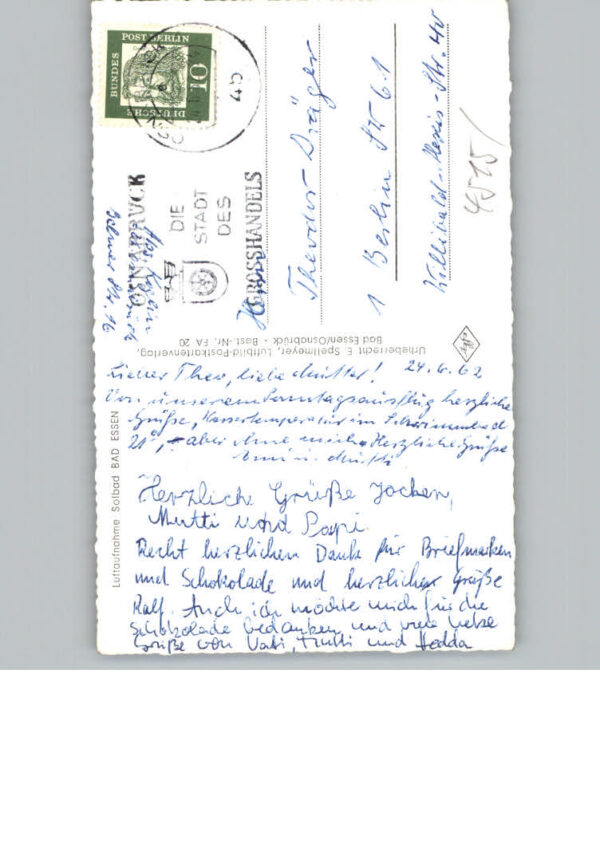 DEUTSCHE
BUNDES
POST BERLIN
10
45
OSNABRÜCK
DIE
STADT
DES
GROSSHANDELS
Herrn
Theodor Dräger
1 Berlin SW 61
Willibald-Alexis-Str. 40
4515/
Osnabrück
Str. 16
Urheberrecht E. Spellmeyer, Luftbild-Postkartenverlag,
Bad Essen/Osnabrück • Best.-Nr. FA 20
Agfa
Luftaufnahme Solbad BAD ESSEN
24.6.62
Lieber Theo, liebe Mutter!
Von unserem Sonntagsausflug herzliche
Grüße, Wassertemperatur im Schwimmbad
21°, – aber ohne mich. Herzliche Grüße
Herzliche Grüße Jochen,
Mutti und Papi.
Recht herzlichen Dank für Briefmarken
und Schokolade und herzliche Grüße
Ralf. Auch ich möchte mich für die
Schokolade bedanken und viele liebe
Grüße von Vati, Mutti und Hedda